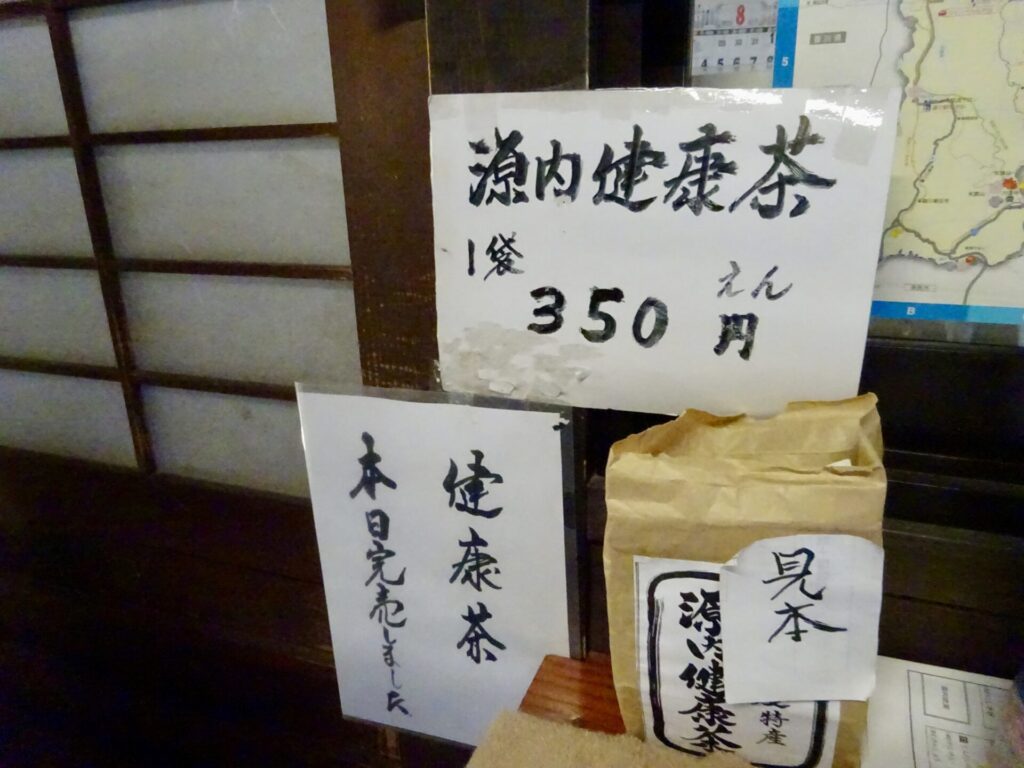 源内健康茶
1袋
350
えん
円
健康茶
本日完売しました
見本
源内健康茶
特産
8
4 5 6 7 8
5
B